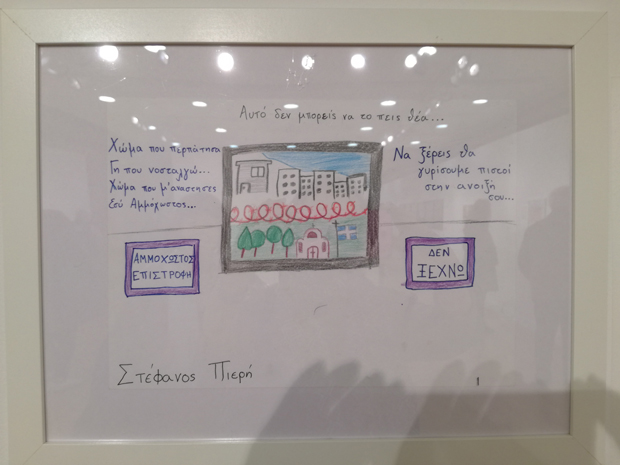 Αυτό δεν μπορείς να το πεις θέα...
Χώμα που περπάτησα
Γη που νοσταλγώ...
Χώμα που μ'αναστησες
Εσύ Αμμόχωστος...
Να ξέρεις θα
γυρίσουμε πιστοί
στην ανοιξή
σου...
ΑΜΜΟΧΩΣΤΟΣ
ΕΠΙΣΤΡΟΦΗ
ΔΕΝ
ΞΕΧΝΩ
Στέφανος Πιερή
1